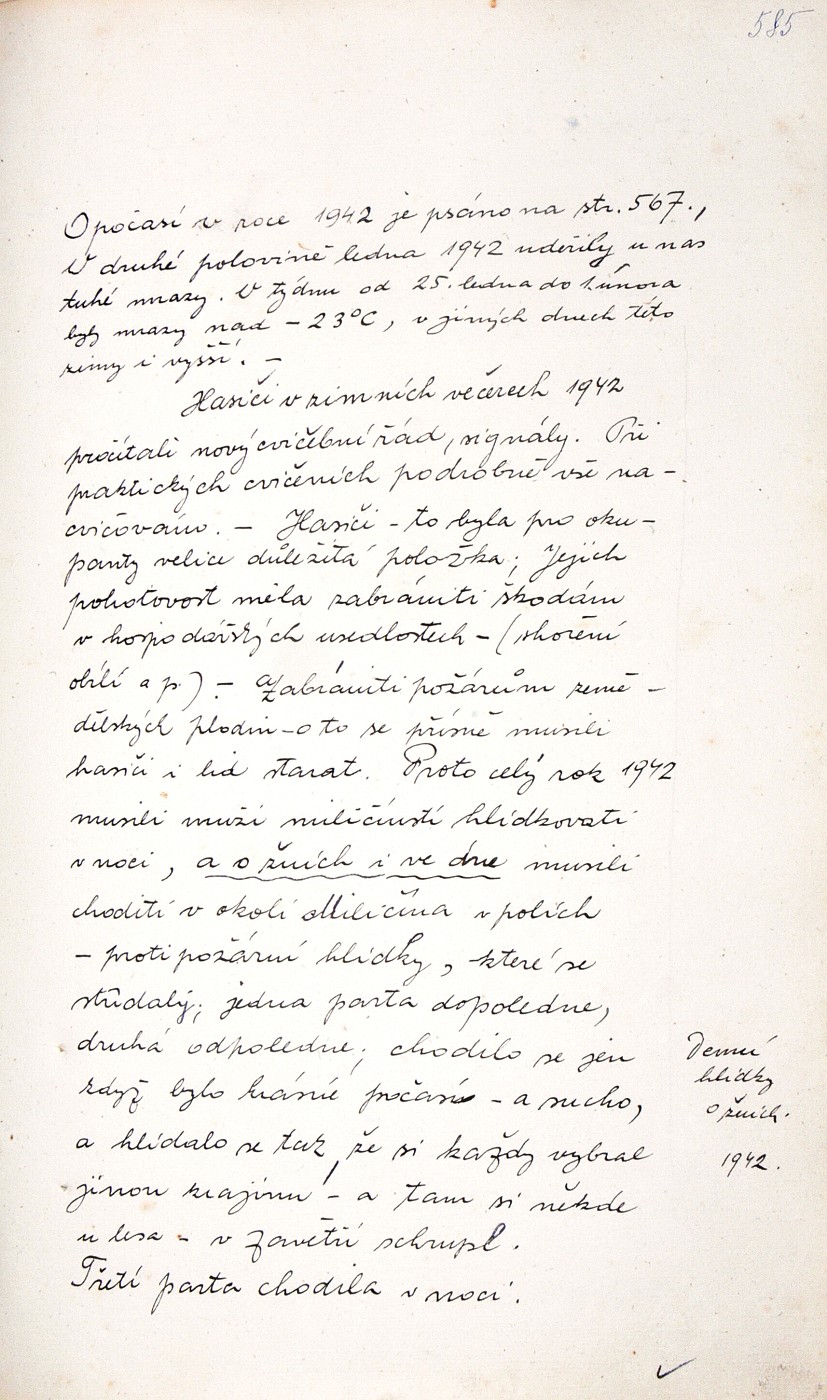 585
O počasí v roce 1942 je psáno na str. 567.,
V druhé polovině ledna 1942 udeřily u nás
tuhé mrazy. V týdnu od 25. ledna do 1. února
byly mrazy nad -23°C, v jiných dnech této
zimy i vyšší. –
Hasiči v zimních večerech 1942
pročítali nový cvičební řád, signály. Při
praktických cvičeních podrobně vše na-
cvičováno. – Hasiči - to byla pro oku-
panty velice důležitá položka; Jejich
pohotovost měla zabrániti škodám
v hospodářských usedlostech - (shoření
obilí a p.) – Zabrániti požárům země-
dělských plodin - o to se přísně musili
hasiči i lid starat. Proto celý rok 1942
musili muži miličínští hlídkovati
v noci, a o žních i ve dne musili
choditi v okolí Miličína v polích
- protipožární hlídky, které se
střídaly; jedna parta dopoledne,
druhá odpoledne; chodilo se jen
když bylo krásné počasí - a sucho,
a hlídalo se tak, že si každý vybral
jinou krajinu - a tam si někde
u lesa - v závětří schrupl.
Třetí parta chodila v noci.
Denní
hlídky
o žních.
1942.